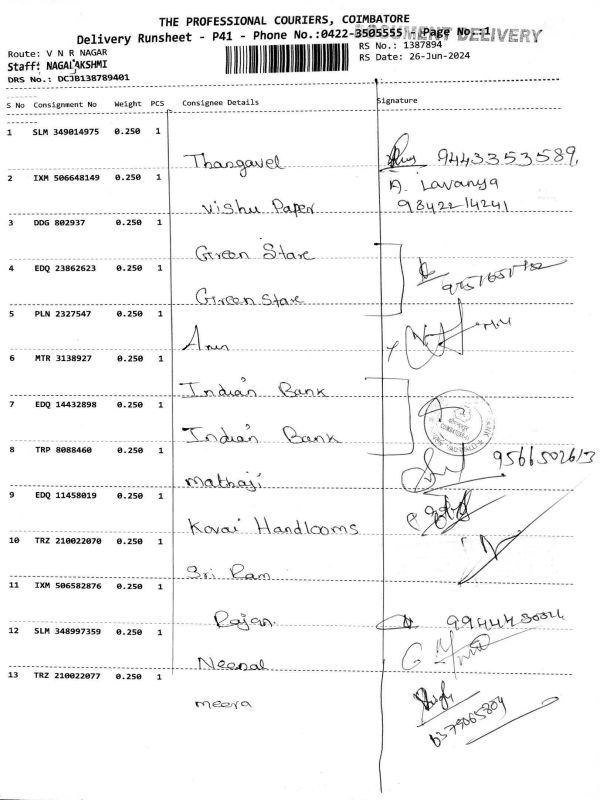 THE PROFESSIONAL COURIERS, COIMBATORE
DOCUMENT DELIVERY
Delivery Runsheet - P41 - Phone No.:0422-3505555 - Page No.:1
Route: V N R NAGAR
RS No.: 1387894
Staff: NAGALAKSHMI
RS Date: 26-Jun-2024
DRS No.: DCJB138789401
S No Consignment No Weight PCS Consignee Details Signature
1 SLM 349014975 0.250 1
Thangavel 9443353589,
2 IXM 506648149 0.250 1
A. Lavanya
Vishu Paper 9842214241
3 DDG 802937 0.250 1
Green Stare
4 EDQ 23862623 0.250 1
Green Stare
5 PLN 2327547 0.250 1
Arun
6 MTR 3138927 0.250 1
Indian Bank
7 EDQ 14432898 0.250 1
Indian Bank
8 TRP 8088460 0.250 1
9566502613
Mathaji
9 EDQ 11458019 0.250 1
Kovai Handlooms
10 TRZ 210022070 0.250 1
Sri Ram
11 IXM 506582876 0.250 1
Rajan
12 SLM 348997359 0.250 1
Neepal
13 TRZ 210022077 0.250 1
meera
6379065804